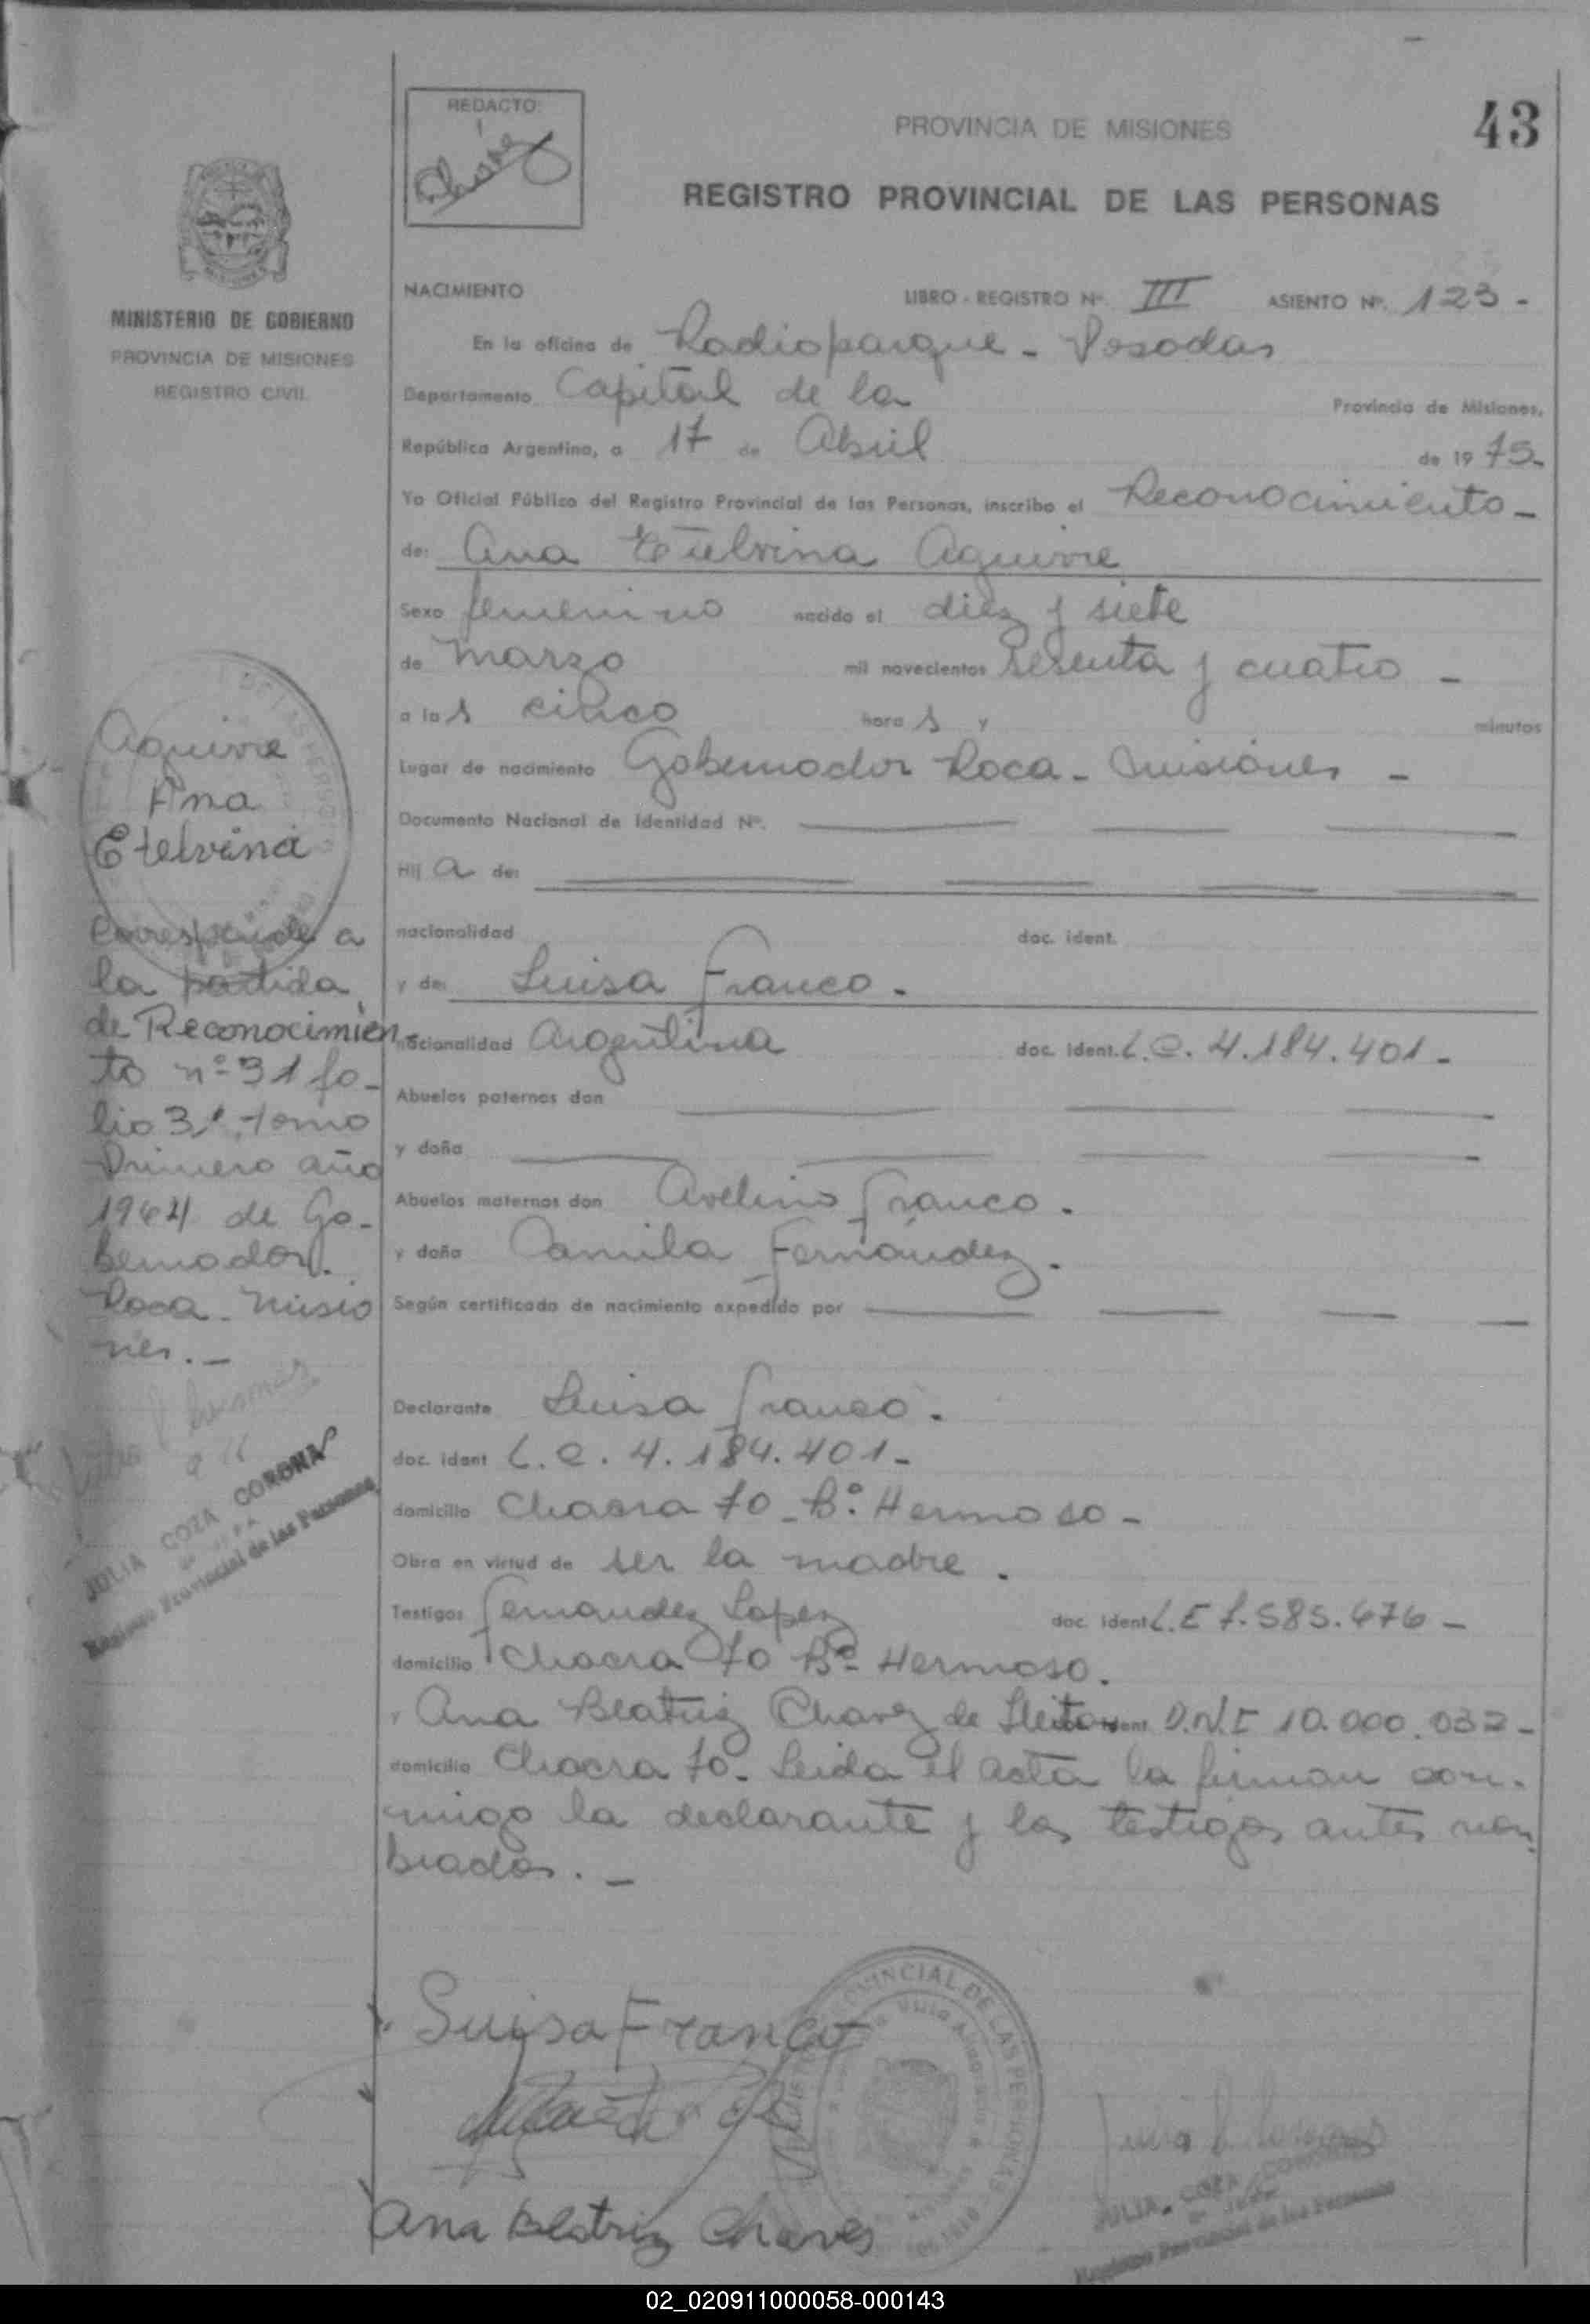 43
REDACTO:
Chavez
PROVINCIA DE MISIONES
REGISTRO PROVINCIAL DE LAS PERSONAS
MINISTERIO DE GOBIERNO
PROVINCIA DE MISIONES
REGISTRO CIVIL
NACIMIENTO LIBRO - REGISTRO Nº. III ASIENTO Nº. 123 -
En la oficina de Radioparque - Posadas
Departamento Capital de la Provincia de Misiones,
República Argentina, a 17 de Abril de 19 75-
Yo Oficial Público del Registro Provincial de las Personas, inscribo el Reconocimiento -
de: Ana Etelvina Aguirre
Sexo femenino nacido el diez y siete
de Marzo mil novecientos sesenta y cuatro -
a las cinco horas y minutos
Lugar de nacimiento Gobernador Roca - Misiones -
Documento Nacional de Identidad Nº.
Hija de:
nacionalidad doc. ident.
y de: Luisa Franco -
nacionalidad Argentina doc. ident. L.C. 4.184.401 -
Abuelos paternos don
y doña
Abuelos maternos don Avelino Franco .
y doña Camila Fernández .
Según certificado de nacimiento expedido por
Declarante Luisa Franco .
doc. ident L.C. 4.184.401-
domicilio Chacra 70 - Bº. Hermoso -
Obra en virtud de ser la madre .
Testigos Fernandez Lopez doc. ident L.E 7.585.676 -
domicilio Chacra 70 Bº Hermoso .
y Ana Beatriz Chavez de ident D.N.I 10.000.032 -
domicilio Chacra 70 - Leida el acta la firman con-
migo la declarante y los testigos antes nom
brados . -
Aguirre
Ana
Etelvina
Corresponde a
la partida
de Reconocimien-
to nº 31 fo-
lio 31, tomo
Primero año
1964 de Go-
bernador
Roca - Misio
nes . -
JULIA COZA CORONA
Registro Provincial de las Personas
Luisa Franco
Ana Beatriz Chaves
PROVINCIAL DE LAS PERSONAS
JULIA COZA CORONA
Registro Provincial de las Personas
02_020911000058-000143